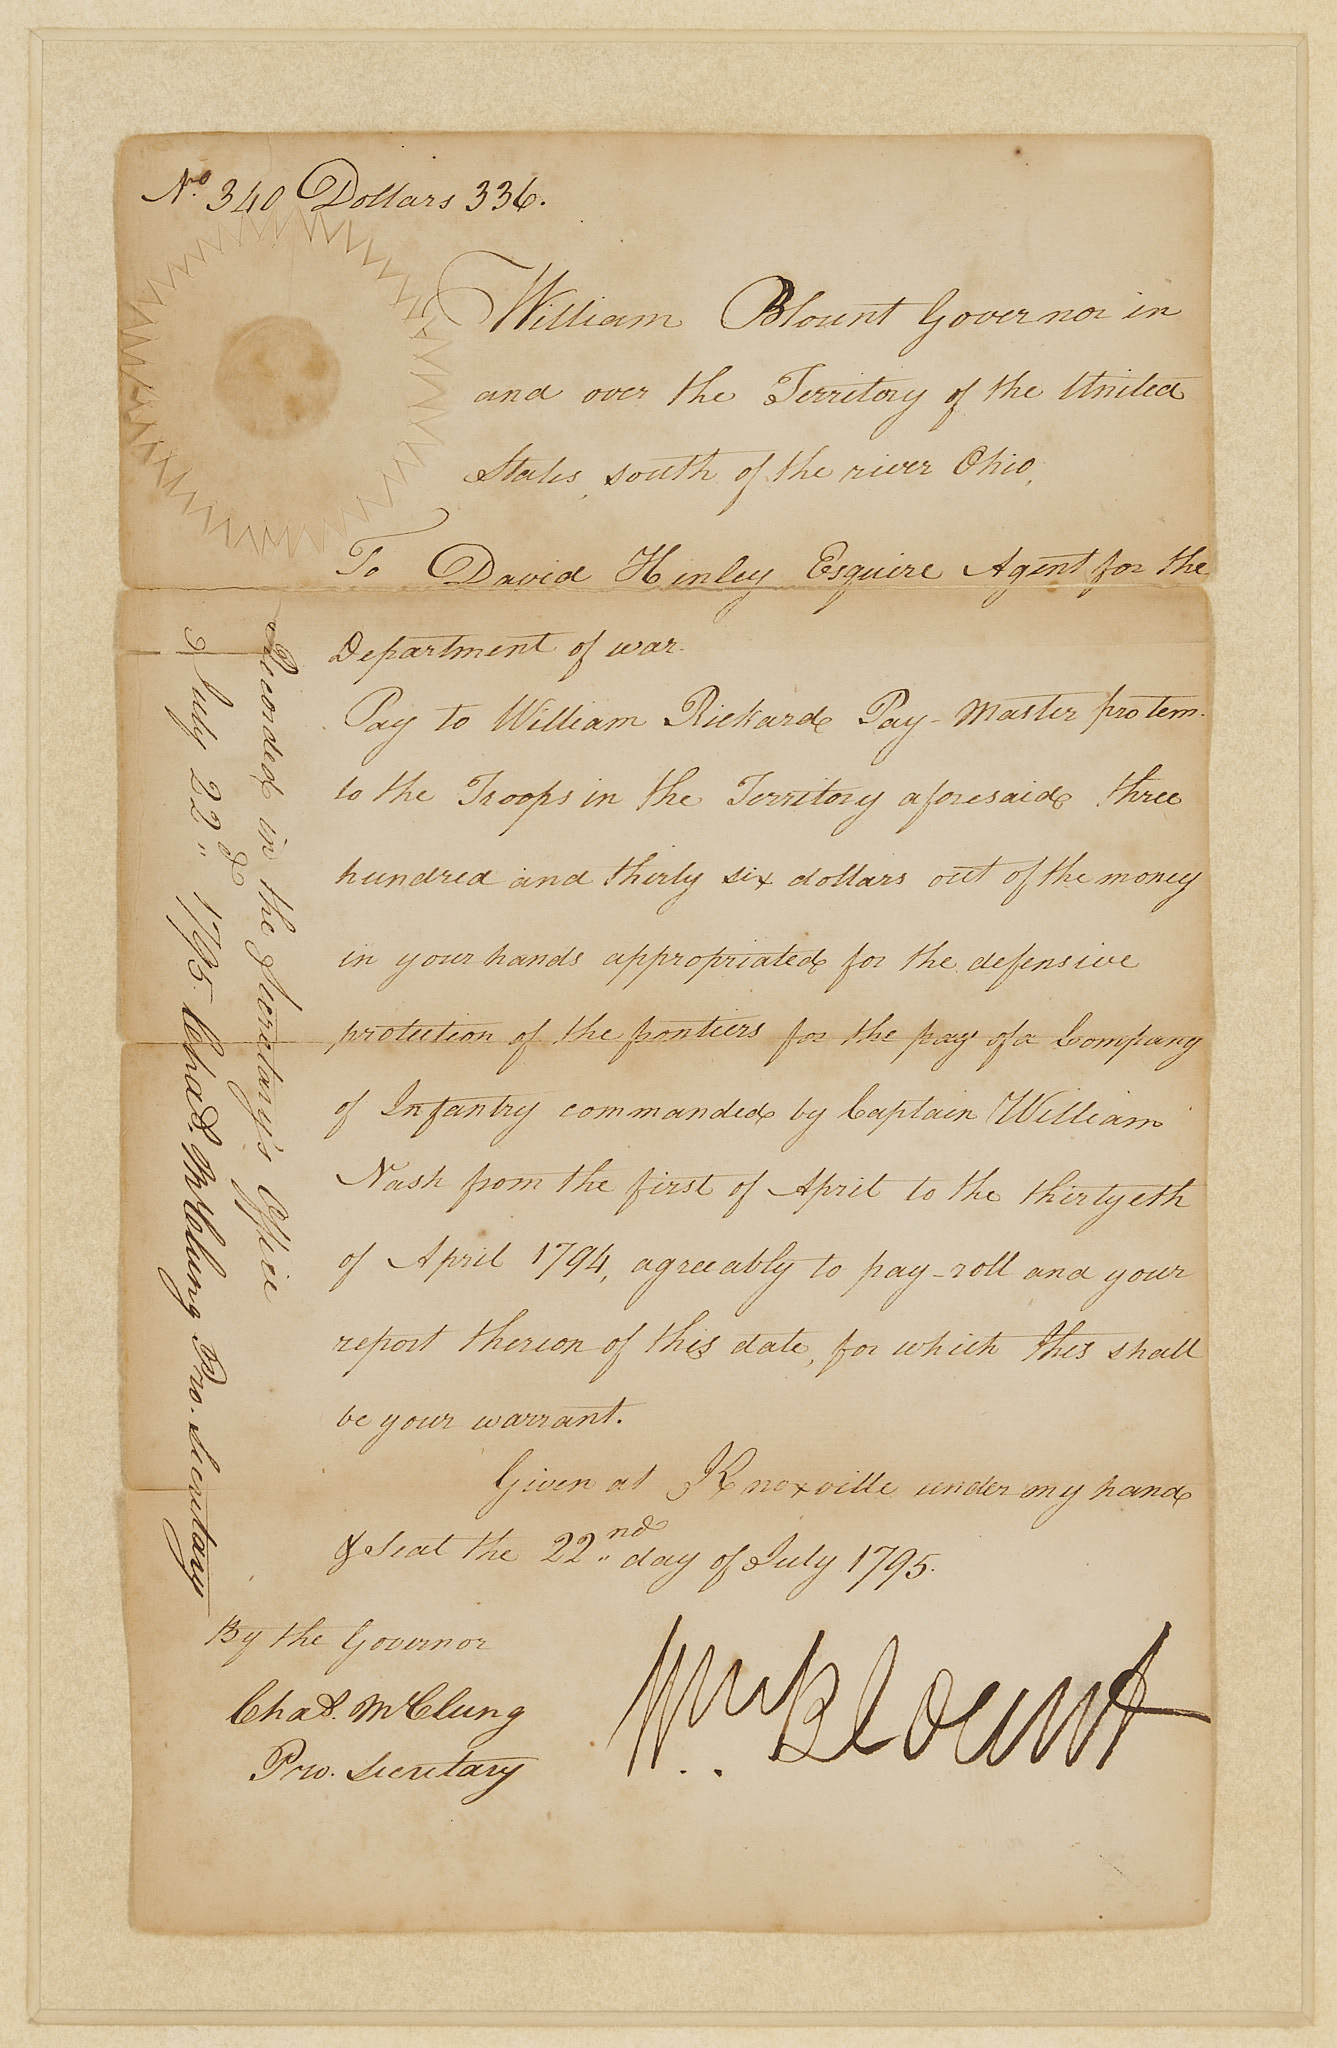 No. 340 Dollars 336.
William Blount Governor in
and over the Territory of the United
States, south of the river Ohio,
To David Henley Esquire Agent for the
Department of war.
Pay to William Rickard Pay-Master protem.
to the Troops in the Territory aforesaid three
hundred and thirty six dollars out of the money
in your hands appropriated for the defensive
protection of the frontiers for the pay of a Company
of Infantry commanded by Captain William
Nash from the first of April to the thirtyeth
of April 1794, agreeably to pay-roll and your
report thereon of this date, for which this shall
be your warrant.
Given at Knoxville under my hand
& seal the 22nd day of July 1795.
By the Governor
Chas. McClung
Pro. Secretary
Wm. Blount
Recorded in the Secretary's Office
July 22d 1795. Chas. McClung Pro. Secretary